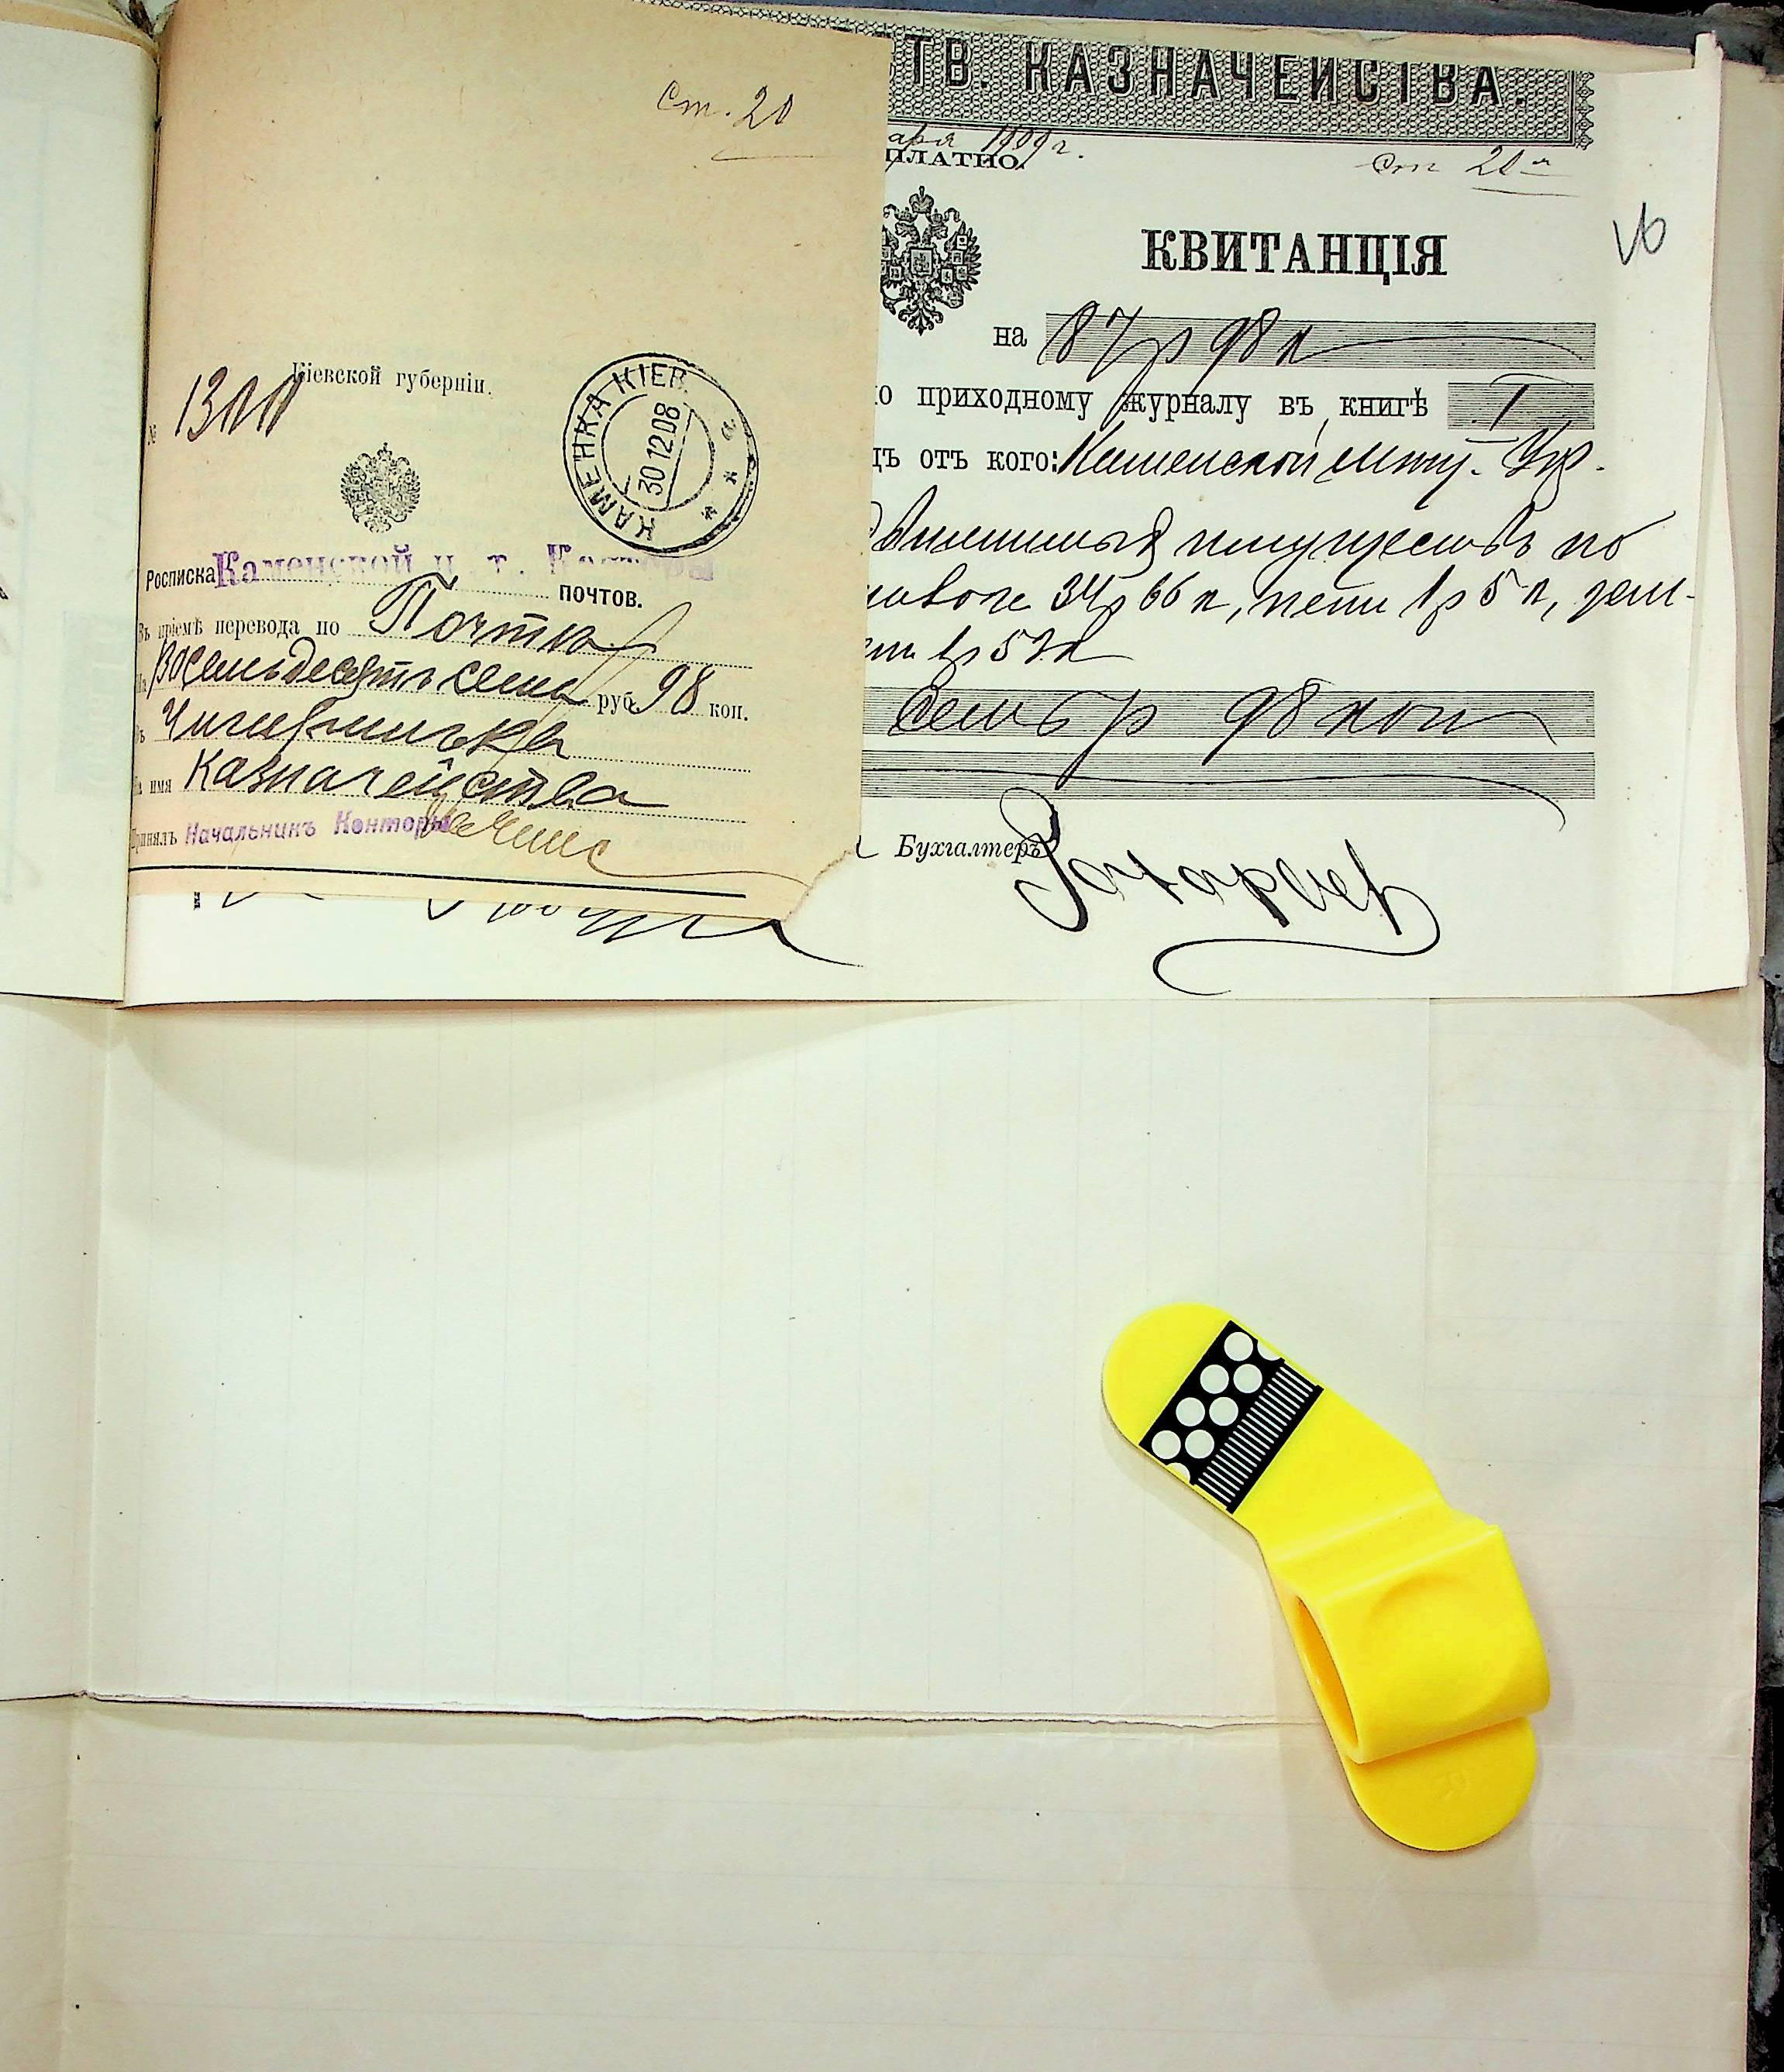 ст. 20
Кіевской губерніи.
№ 1300
КАМЕНКА КІЕВ.
30 12 08
Росписка Каменской п. т. Конторы
почтов.
Въ пріемѣ перевода по Почтѣ
На Восемьдесятъ семь руб. 98 коп.
Въ Чигиринъ
На имя Казначейства
Принялъ Начальникъ Конторы
ТВ. КАЗНАЧЕЙСТВА.
аря 1909 г.
ПЛАТНО.
ст 20
КВИТАНЦІЯ
16
на 87 р 98 к
по приходному журналу въ книгѣ I
дъ отъ кого: Каменской Упр.
имуществъ по
34 р 66 к, пени 1 р 5 к, зем-
1 р 52 к
Семь р 98 коп
Бухгалтеръ